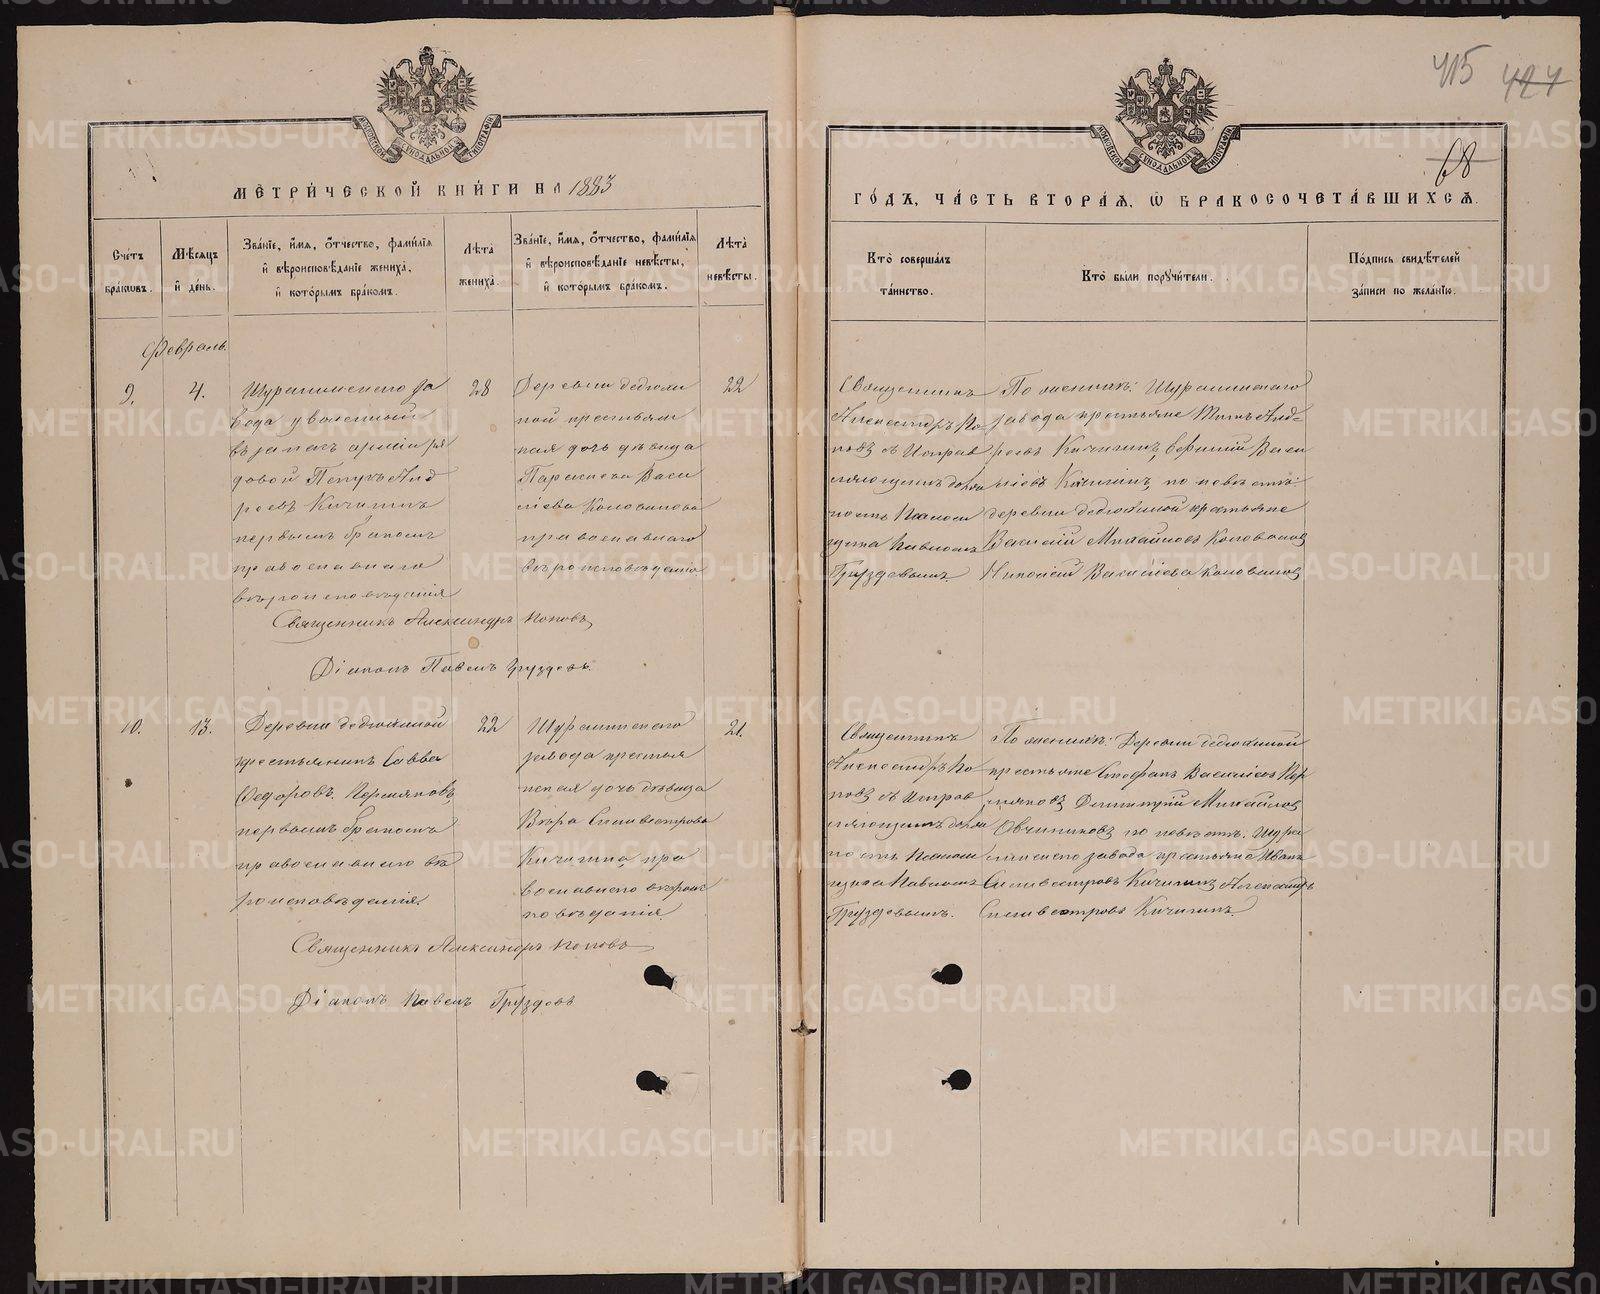 415 424
68
МОСКОВСКОЙ СУНОДАЛЬНОЙ ТИПОГРАФІИ
МЕТРИ́ЧЕСКОЙ КНИ́ГИ НА 1883
Сче́тъ бра́кѡвъ.
Мѣ́сяцъ и҆ де́нь.
Зва́нїе, и҆́мѧ, ѻ҆́тчество, фами́лїѧ
и҆ вѣроисповѣ́данїе жениха̀,
и҆ кото́рымъ бра́комъ.
Лѣ́та жениха̀.
Зва́нїе, и҆́мѧ, ѻ҆́тчество, фами́лїѧ
и҆ вѣроисповѣ́данїе невѣ́сты,
и҆ кото́рымъ бра́комъ.
Лѣ́та невѣ́сты.
Февраль.
9. 4.
Шуралинскаго за
вода уволенный
въ запасъ арміи ря
довой Петръ Анд
реевъ Кичигинъ
первымъ бракомъ
православнаго
вѣроисповѣданія
28
Деревни Федюхи
ной крестьян
ская дочь дѣвица
Параскева Васи
ліева Колованова
православнаго
вѣроисповѣданія
22
Священникъ Александръ Поповъ
Діаконъ Павелъ Груздевъ.
10. 13.
крестьянинъ Савва
Федоровъ Пермяковъ,
первымъ бракомъ
православнаго вѣ
роисповѣданія
22
Шуралинскаго
завода крестья
нская дочь дѣвица
Вѣра Сильвестрова
Кичигина, пра
вославнаго вѣроис
повѣданія
21.
Священникъ Александръ Поповъ
Діаконъ Павелъ Груздевъ
ГО́ДЪ, ЧА́СТЬ ВТОРА́Ѧ, Ѡ҆ БРАКОСОЧЕТА́ВШИХСѦ.
Кто̀ соверша́лъ
та́инство.
Кто̀ бы́ли поручи́тели.
По́дпись свидѣ́телей
за́писи по жела́нїю.
Священникъ
Александръ По
повъ съ Исправ
ляющимъ долж
ность Псалом
щика Павломъ
Груздевымъ
По женихѣ: Шуралинскаго
завода крестьяне Титъ Анд-
реевъ Кичигинъ,
ліевъ Кичигинъ, по невѣстѣ:
крестьяне
Василій Михайловъ Коловановъ
Николай Васильевъ Коловановъ
Священникъ
Александръ По
повъ съ Исправ
ляющимъ долж
ность Псалом
щика Павломъ
Груздевымъ.
По женихѣ: Деревни
крестьяне Стефанъ Василіевъ Пер
мяковъ Димитрій Михайловъ
Овчинниковъ по невѣстѣ: Шура
линскаго завода крестьяне Иванъ
Сильвестровъ Кичигинъ Александръ
Сильвестровъ Кичигинъ
METRIKI.GASO-URAL.RU